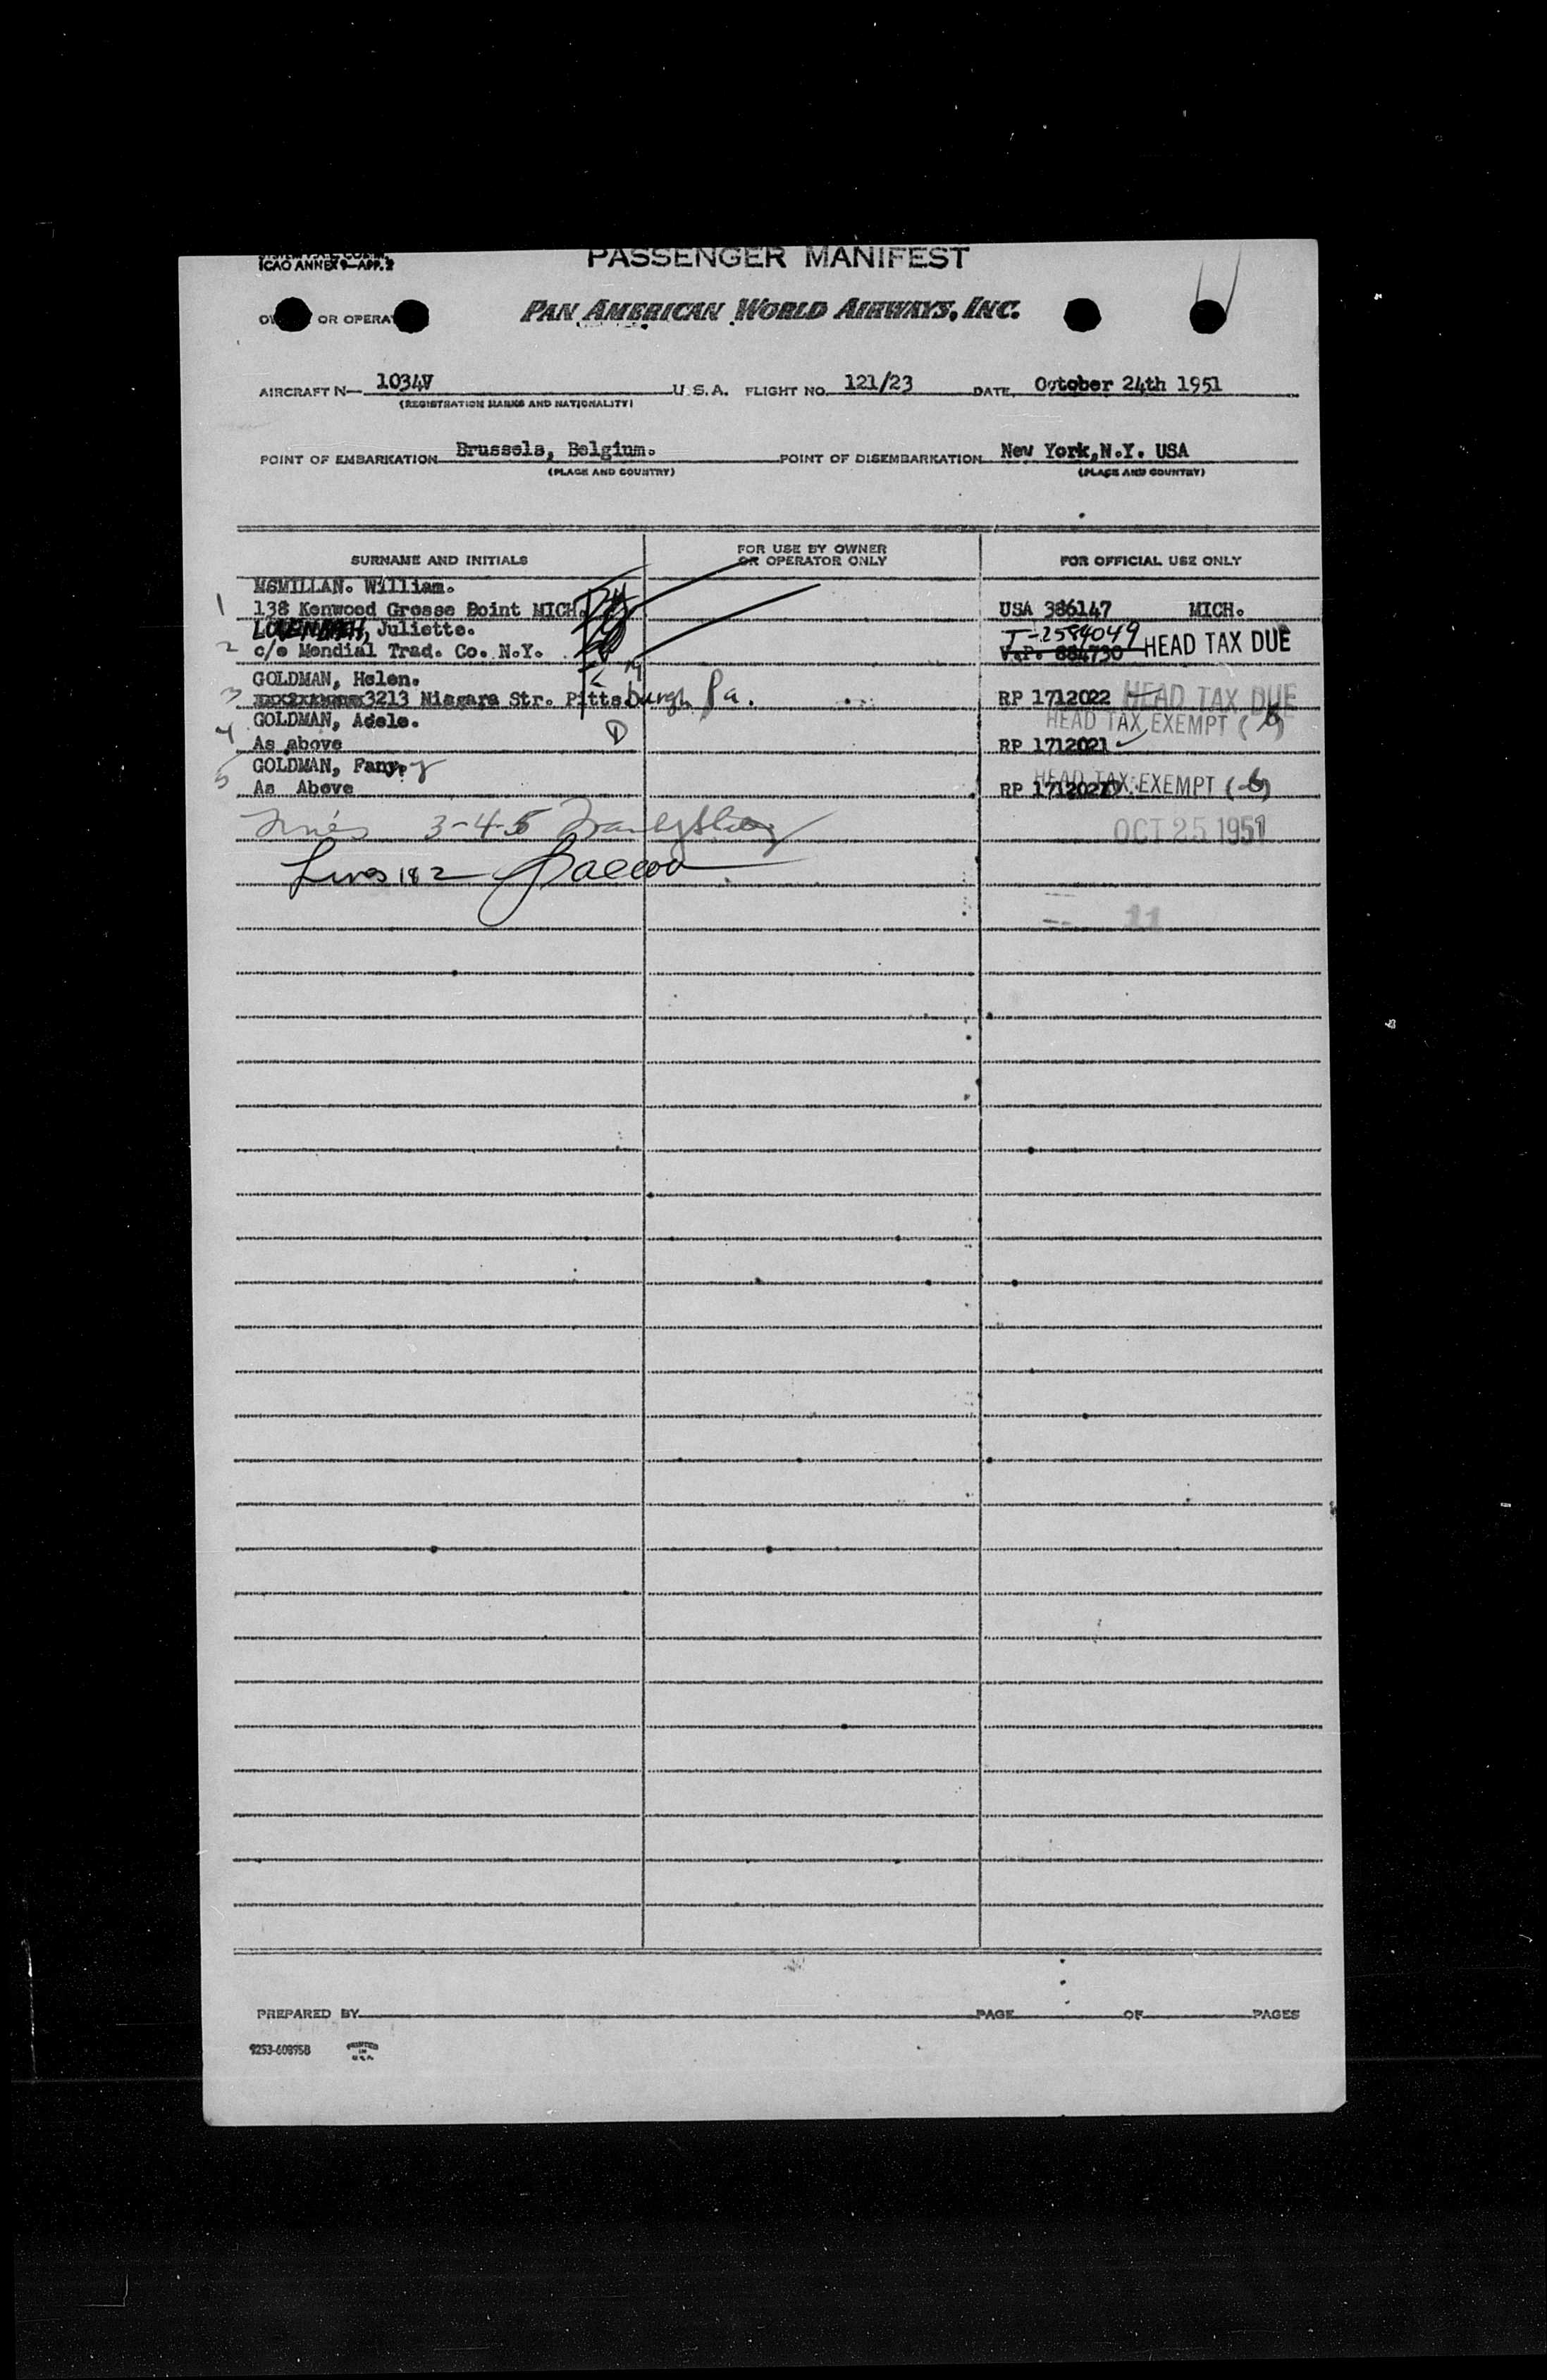 ICAO ANNEX 9—APP. 2
PASSENGER MANIFEST
OR OPERAT
PAN AMERICAN WORLD AIRWAYS, INC.
AIRCRAFT N— 1034V U.S.A. FLIGHT NO. 121/23 DATE October 24th 1951
(REGISTRATION MARKS AND NATIONALITY)
POINT OF EMBARKATION Brussels, Belgium. POINT OF DISEMBARKATION New York,N.Y. USA
(PLACE AND COUNTRY) (PLACE AND COUNTRY)
SURNAME AND INITIALS FOR USE BY OWNER OR OPERATOR ONLY FOR OFFICIAL USE ONLY
MSMILLAN. William.
1 138 Kenwood Grosse Point MICH. USA 386147 MICH.
Juliette. T-2584049
2 c/o Mondial Trad. Co. N.Y. V.P. 884730 HEAD TAX DUE
GOLDMAN, Helen.
3 3213 Niagara Str. Pittsburgh Pa. RP 1712022 HEAD TAX DUE
GOLDMAN, Adele. HEAD TAX EXEMPT (6)
4 As above D RP 1712021
GOLDMAN, Fany.
5 As Above RP HEAD TAX EXEMPT (6)
3-4-5
OCT 25 1951
Lines 1&2
11
PREPARED BY PAGE OF PAGES
9253-60895B PRINTED IN U.S.A.